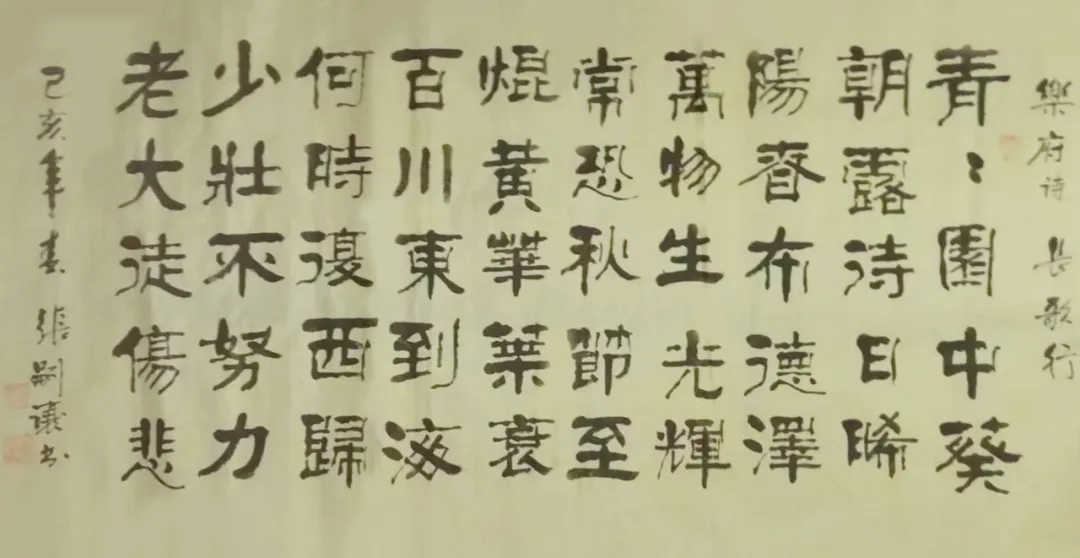 樂府诗 長歌行
青〻園中葵
朝露待日晞
陽春布德澤
萬物生光輝
常恐秋節至
焜黃華葉衰
百川東到海
何時復西歸
少壯不努力
老大徒傷悲
己亥年春 張嗣議书